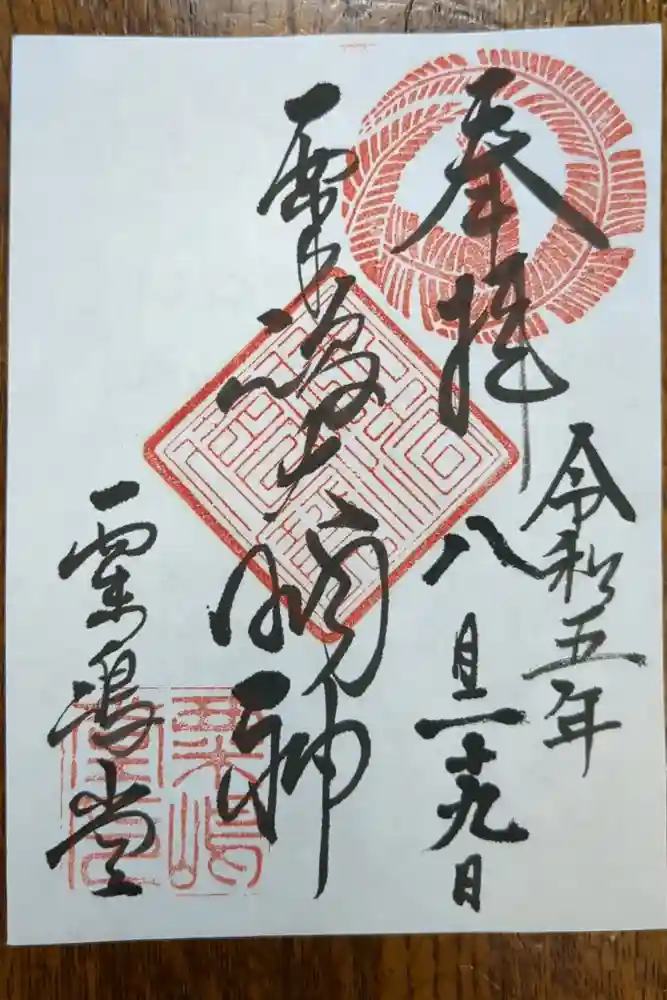 奉拝
令和五年
八月二十九日
粟嶋大明神
粟嶋堂